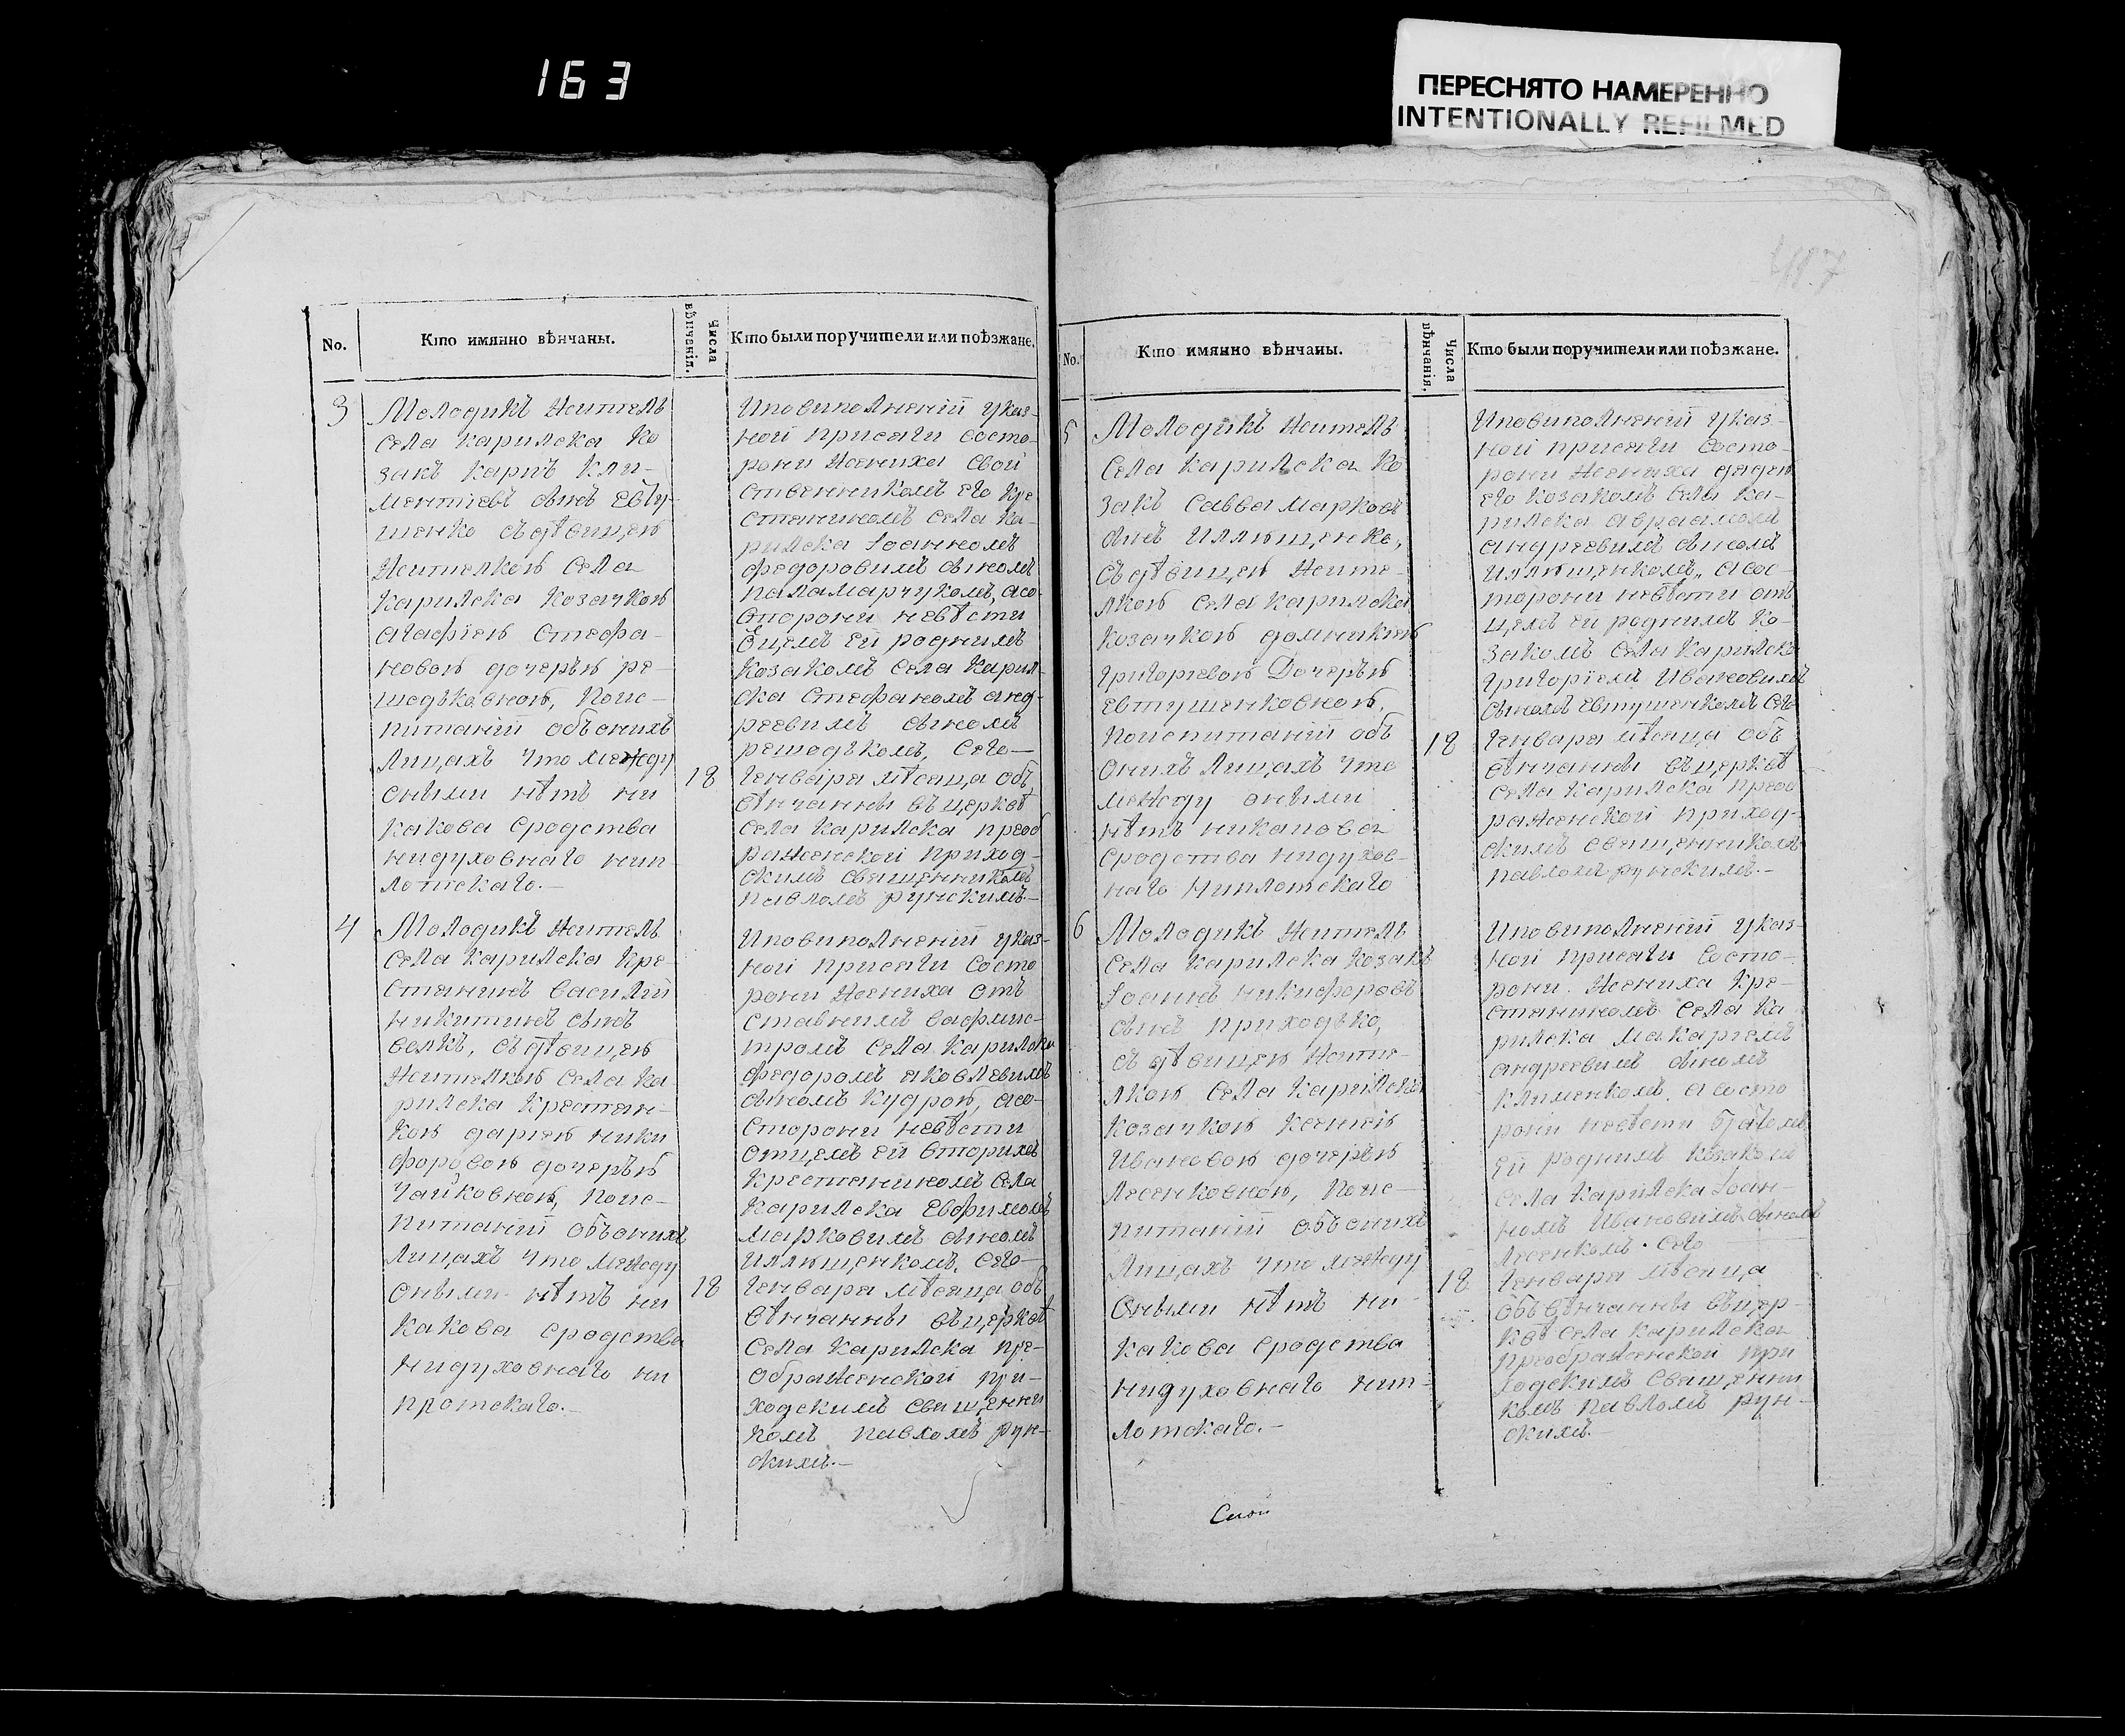 163
ПЕРЕСНЯТО НАМЕРЕННО
INTENTIONALLY REFILMED
No.
Кто имянно вѣнчаны.
Числа вѣнчанія.
Кто были поручители или поѣзжане.
3
Молодикъ житель
села карилска ко
закъ карпъ кли-
ментіевъ синъ евту-
шенко съ дѣвицею
жителкою села
карилска козачкою
агафіею стефа-
новою дочерью ре-
шодковною, поис-
питаніи объ онихъ
лицахъ что между
оними нѣтъ ни
какова сродства
нидуховнаго нип-
лотскаго.-
18
Иповиполненіи указ-
ной присяги состо-
рони жениха свой
ственникомъ его кре
стянином села ка-
рилска Iоанномъ
федоровимъ синомъ
паламарчукомъ, асо
сторони невѣсти
оцемъ ей роднимъ
козакомъ села карил-
ска стефаномъ анд-
реевимъ синомъ
решодкомъ, сего-
генваря мѣсяца об
вѣнчанны въ церквѣ
села карилска преоб
раженской приход-
скимъ священникомъ
павломъ рунскимъ.-
4
Молодикъ житель
села карилска кре-
стянинъ василій
никитинъ синъ
велкъ, съ дѣвицею
жителкою села ка
рилска крестян-
кою даріею ники
форовою дочерью
чайковною, поис-
питаніи объ онихъ
лицахъ что между
оними нѣтъ ни
какова сродства
нидуховнаго ни
плотскаго.-
18
Иповиполненіи указ-
ной присяги состо
рони жениха от
ставнимъ вафмис-
тромъ села карилска
федоромъ яковлевимъ
синомъ кудрою, асо-
сторони невѣсти
отцемъ ей вторимъ
крестяниномъ села
карилска евфимомъ
марковимъ синомъ
иллюшенкомъ, сего-
генваря мѣсяца об
вѣнчанны въ церквѣ
села карилска пре-
ображенской при-
ходскимъ священни
комъ павломъ рун-
скимъ.-
No.
Кто имянно вѣнчаны.
Числа вѣнчанія.
Кто были поручители или поѣзжане.
5
Молодикъ житель
села карилска ко
закъ савва марковъ
синъ иллюшенко,
съ дѣвицею жите-
лкою села карилска
козачкою домникіею
григоревою дочерью
евтушенковною,
поиспитаніи объ
онихъ лицахъ что
между оними
нѣтъ никакова
сродства нидухов-
наго ниплотскаго
18
Иповиполненіи указ-
ной присяги состо-
рони жениха дядею
его козакомъ села ка-
рилска авраамомъ
андреевимъ синомъ
иллюшенкомъ, асос-
торони невѣсти от
цемъ ей роднимъ ко-
закомъ села карилска
григоріемъ ивановимъ
синомъ евтушенкомъ сего
генваря мѣсяца об
вѣнчанны въ церквѣ
села карилска преоб
раженской приход-
скимъ священникомъ
павломъ рунскимъ.-
6
Молодикъ житель
села карилска козакъ
Iоаннъ никифоровъ
синъ приходко,
съ дѣвицею жите-
лкою села карилска
козачкою ксеніею
ивановою дочерью
лесенковною, поис-
питаніи объ онихъ
лицахъ что между
оними нѣтъ ни-
какова сродства
нидуховнаго нип-
лотскаго.-
18
Иповиполненіи указ
ной присяги состо-
рони жениха кре-
стяниномъ села ка
рилска макаріемъ
андреевимъ синомъ
клименкомъ. а состо
рони невѣсти братомъ
ей роднимъ козакомъ
села карилска Iоан-
номъ ивановимъ синомъ
лесенкомъ. сего
генваря мѣсяца
обвѣнчанны въ цер-
квѣ села карилска
преображенской при
ходскимъ священни
комъ павломъ рун-
скимъ.-